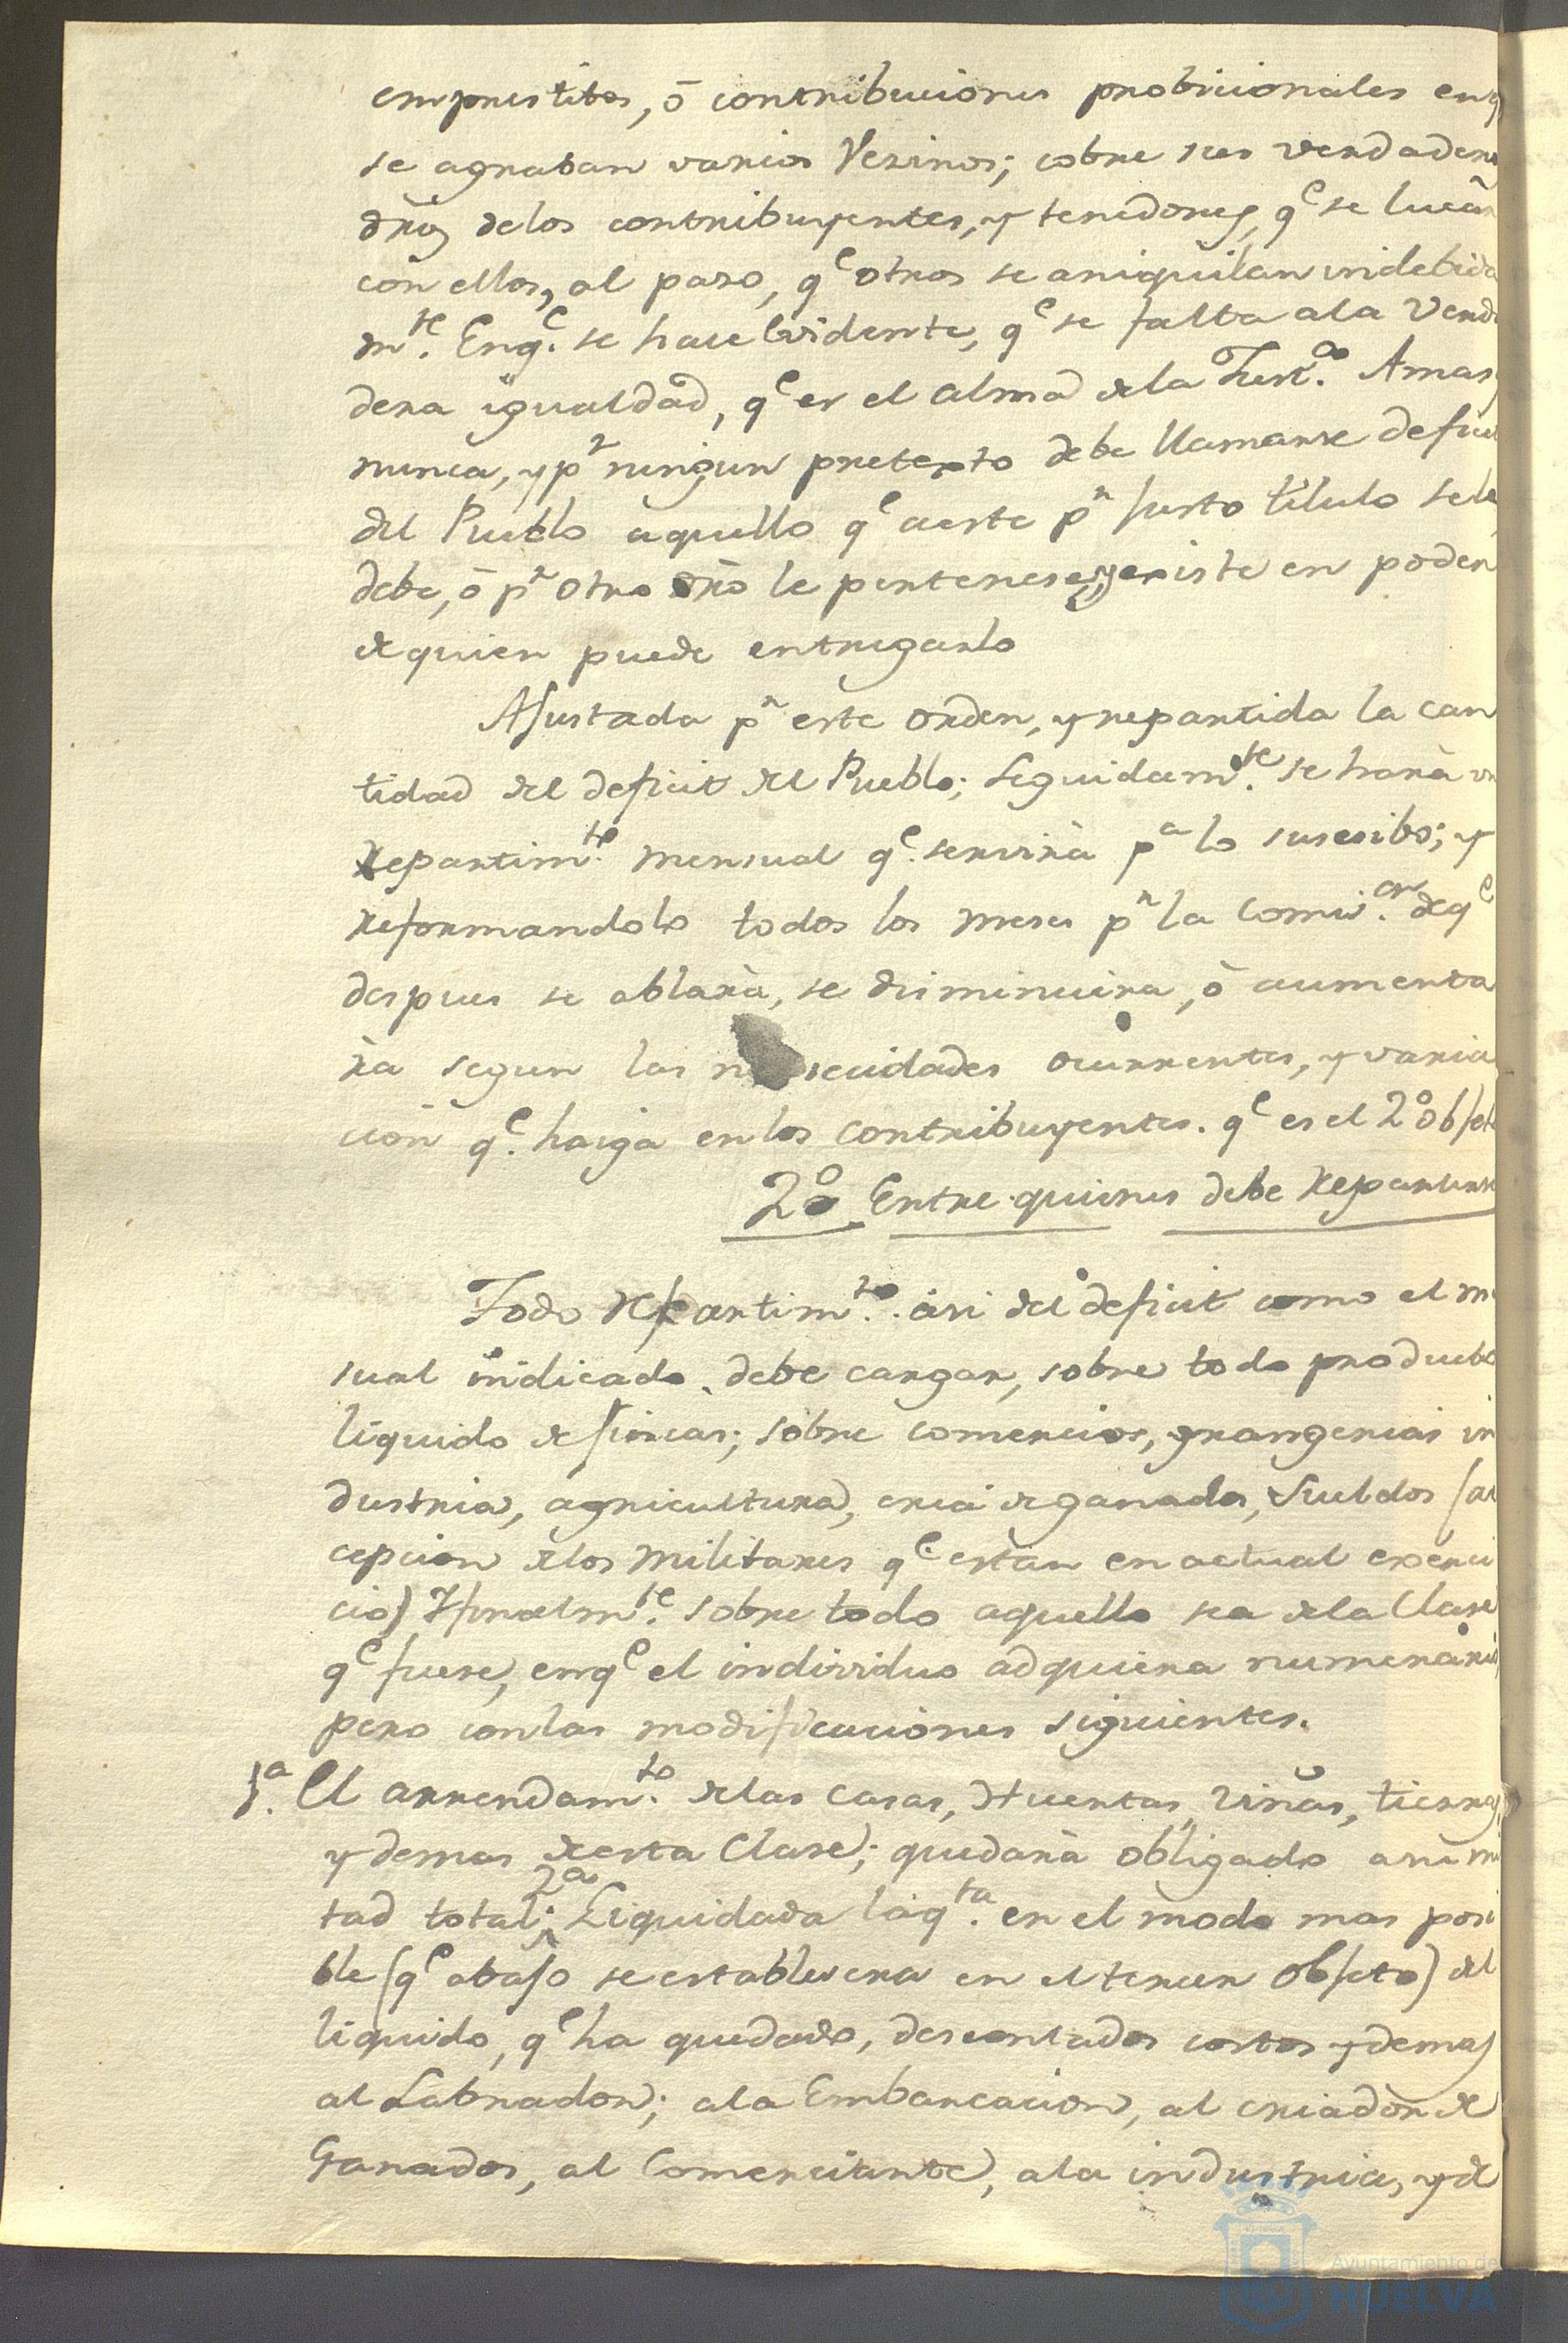 emprestitos, ó contribuciones probicionales en q
se agraban varios Vezinos; cobre sus verdadero
dros de los contribuyentes, y tenedores, qe se lucan
con ellos, al paso, qe otros se aniquilan indebida
mte. En qe. se hace evidente, qe se falta a la Verda
dera igualdad, qe es el alma de la Justa. A mas,
nunca, y pr ningun pretexto debe llamarse defici
del Pueblo aquello qe a este pr justo titulo se le
debe, ó pr otro dro le pertenese, y existe en poder
de quien puede entregarlo
Ajustada pr este orden, y repartida la can
tidad del deficit del Pueblo; Seguidamte. se hará un
repartimto. mensual qe. servirá pa lo susesibo; y
reformandolo todos los meses pr la Comion. de qe
despues se ablará, se disminuira, ó aumenta
rá segun las necicidades ocurrentes, y varia
ción qe. haiga en los contribuyentes. qe es el 2º objet
2º Entre quienes debe repartirse
Todo repartimto. asi del deficit como el m
sual indicado, debe cargar, sobre todo producto
liquido de fincas; sobre comercios, grangerias in
dustria, agricultura, cria de ganado, Sueldos (a
cepcion de los militares qe. estan en actual exerci
cio) Y finalmte. sobre todo aquello sea de la Clase
qe fuere, en qe el individuo adquiera numerario,
pero con las modificaciones siguientes.
1ª. El arrendamto. de las casas, Huertas, viñas, tierras,
y demas de esta Clase; quedará obligado a su mi
tad total; 2ª Liquidada la qta. en el modo mas posi
ble (qe abajo se establecera en el tercer objeto) del
liquido, qe ha quedado, descontados costos y demas
al Labrador; a la Embarcacion, al criador de
Ganados, al Comerciante, a la industria, y de
Ayuntamiento de
HUELVA